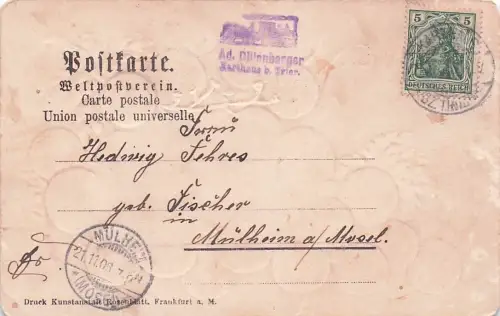 Postkarte.
Weltpostverein.
Carte postale
Union postale universelle
Ad. Dillenberger
Karthaus b. Trier.
5 5
DEUTSCHES REICH
Frau
Hedwig Fehres
geb. Fischer
in
Mülheim a/Mosel.
MÜLHEIM
21.11.09
(MOSEL)
Fr.
Druck Kunstanstalt Rosenblatt, Frankfurt a. M.